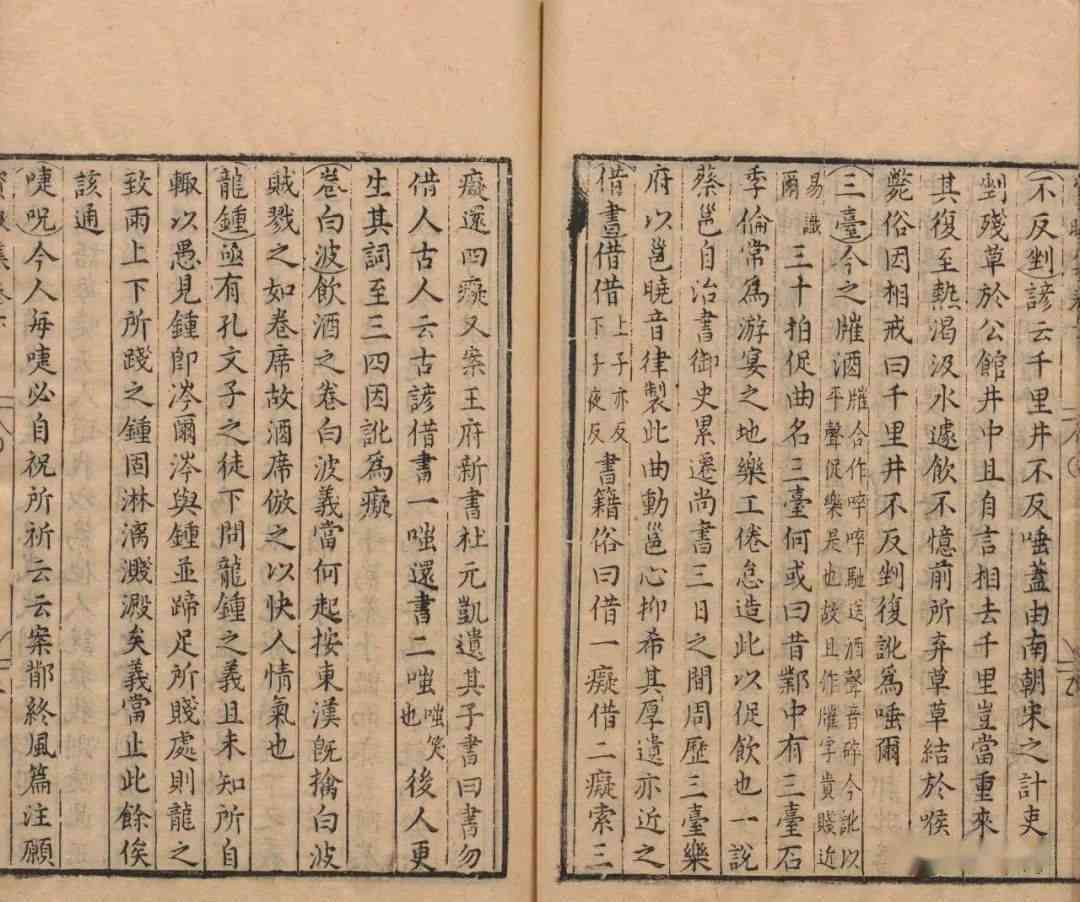 不反剉諺云千里井不反唾蓋由南朝宋之計吏
剉殘草於公館井中且自言相去千里豈當重來
其復至熱渴汲水遽飲不憶前所弃草草結於喉
斃俗因相戒曰千里井不反剉復訛爲唾爾
三臺今之𤗉酒𤗉合作啐啐馳送酒聲音碎今訛以平聲促樂是也故且作𤗉字貴賤近
易識爾三十拍促曲名三臺何或曰昔鄴中有三臺石
季倫常爲游宴之地樂工倦怠造此以促飲也一說
蔡邕自治書御史累遷尚書三日之間周歷三臺樂
府以邕曉音律製此曲動邕心抑希其厚遺亦近之
借書借借上子亦反下子夜反書籍俗曰借一癡借二癡索三
癡還四癡又案王府新書杜元凱遺其子書曰書勿
借人古人云古諺借書一嗤還書二嗤嗤笑也後人更
生其詞至三四因訛爲癡
卷白波飲酒之卷白波義當何起按東漢旣擒白波
賊戮之如卷席故酒席倣之以快人情氣也
龍鍾亟有孔文子之徒下問龍鍾之義且未知所自
輙以愚見鍾卽涔爾涔與鍾並蹄足所賤處則龍之
致雨上下所踐之鍾固淋漓濺澱矣義當止此餘俟
該通
嚏咒今人每嚏必自祝所祈云云案邶終風篇注願